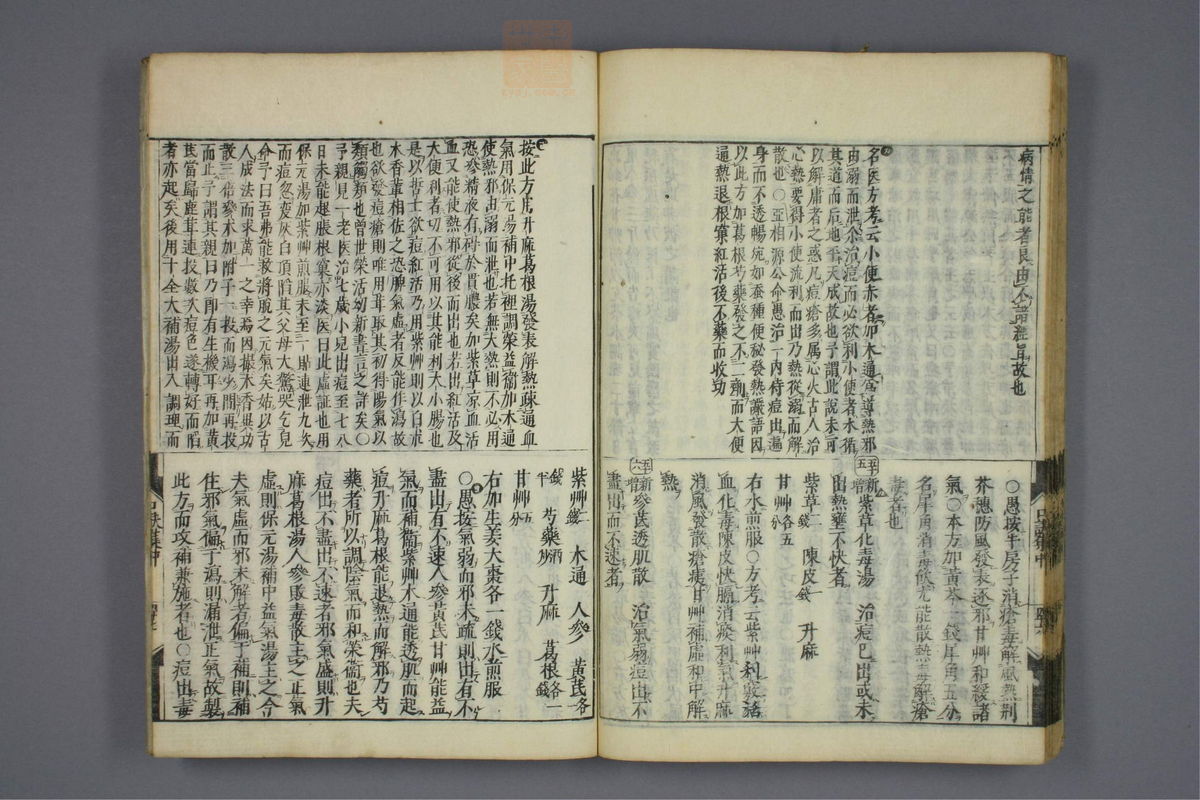 病情之能者良由不諳經旨故也
名医方考云小便赤者加木通為導熱邪
由溺而泄尒治痘而必欲利小便者木循
其道而后地平天成故也予謂此說未可
以解庸者之惑凡痘瘡多属心火古人治
心熱要得小便流利而出乃熱從溺而解
散也〇亞相源公命愚治一内侍痘出遍
身而不透暢宛如蚕種便秘發熱譫語因
以此方加葛根芍藥發之不二劑而大便
通熱退根窠紅活後不藥而收功
〇愚按牛房子消瘡毒解風熱荆
芥德防風發表逐邪甘艸和緩諸
氣〇本方加黃芩一錢犀角五分
名犀角消毒飲尤能散熱毒解瘡
毒者也
五十五 新增 紫草化毒湯 治痘已出或未
出熱壅不快者
紫草二錢 陳皮一錢 升麻
甘艸各五分
右水煎服〇方考云紫艸利竅活
血化毒陳皮快膈消痰利氣升麻
消風發散瘡痍甘艸補虛和中解
熱
五十六 新增 參芪透肌散 治氣弱痘出不
盡出而不速者
按此方為升麻葛根湯發表解熱疎通血
氣用保元湯補中托裡調榮益衛加木通
使熱邪由溺而泄也若無大熱則不必用
恐滲精液有利於貫膿矣加紫草凉血活
血又能使熱邪從後而出也若出紅活及
大便利者切不可用以其能利大小腸也
是以哲士欲痘紅活乃用紫艸則以白朮
木香薑相佐之恐脾氣虛者反能作瀉故
也欲發痘瘡則唯用茸取其初得陽氣以
類觸類也曾世榮活幼新書言之詳矣〇
予親見一老医治七歲小兒出痘至七八
日未能起脹根窠亦淡医曰此虛証也用
保元湯加紫艸煎服未至二貼連泄九次
而痘忽变灰白頂陷其父母大驚哭乞兒
命予曰吾弗能救將脫之元氣矣姑以古
人成法而求萬一之幸焉因撮木香異功
散三倍參朮加附子一投而瀉少間再投
而止予謂其親曰乃卽有生機耳再加黃
芪當歸鹿茸連投數次痘色遂轉好而陷
者亦起矣後用十全大補湯出入調理而
紫艸二錢 木通 人參 黃芪各
錢半 芍藥酒炒 升麻 葛根各一錢
甘艸五分
右加生姜大棗各一錢水煎服
〇愚按氣弱而邪未疏則出有不
盡出有不速人參黃芪甘艸能益
氣而補衛紫艸木通能透肌而起
痘升麻葛根能退熱而解邪乃芍
藥者所以調陰氣而和榮衛也夫
痘出不盡出不速者邪氣盛則升
麻葛根湯人參敗毒散主之正氣
虛則保元湯補中益氣湯主之今
夫氣虛而邪未解者偏于補則補
住邪氣偏于瀉則漏泄正氣故製
此方而攻補兼施者也〇痘出毒